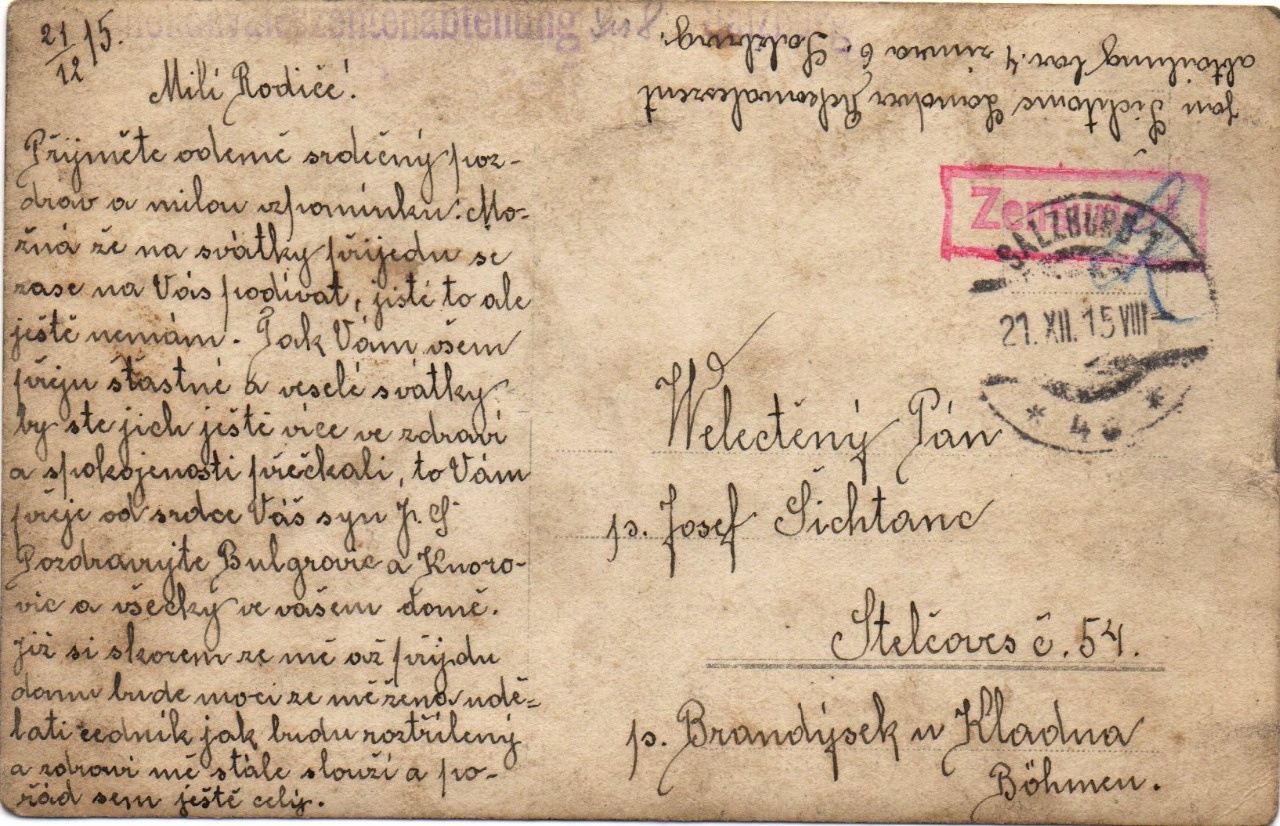 21/12 15.
Milí Rodiče!
Přijměte odemě srdečný poz-
drav a milou vzpomínku. Mo-
žná že na svátky přijedu se
zase na Vás podívat, jisté to ale
ještě nemám. Pak Vám všem
přeju štastné a veselé svátky
by ste jich ještě více ve zdraví
a spokojenosti přečkali, to Vám
přeje od srdce Váš syn J. Š
Pozdravujte Bulgrovic a Knoro-
vic a všecky ve vašem domě.
Již si skorem ze mě až přijdu
domu bude moci ze mě žena udě-
lati cedník jak budu roztřílený
a zdraví mě stále slouží a po-
řád sem ještě celý.
Rekonvaleszentenabteilung
Jan Šichtanc Rekonvaleszent
abteilung bar. 4 zimra 6. Salzburg.
Zensuriert
SALZBURG 1
21.XII.15 VIII
* 4 *
Welectěný Pán
p. Josef Šichtanc
Stelčoves č. 54.
p. Brandýsek u Kladna
Böhmen.